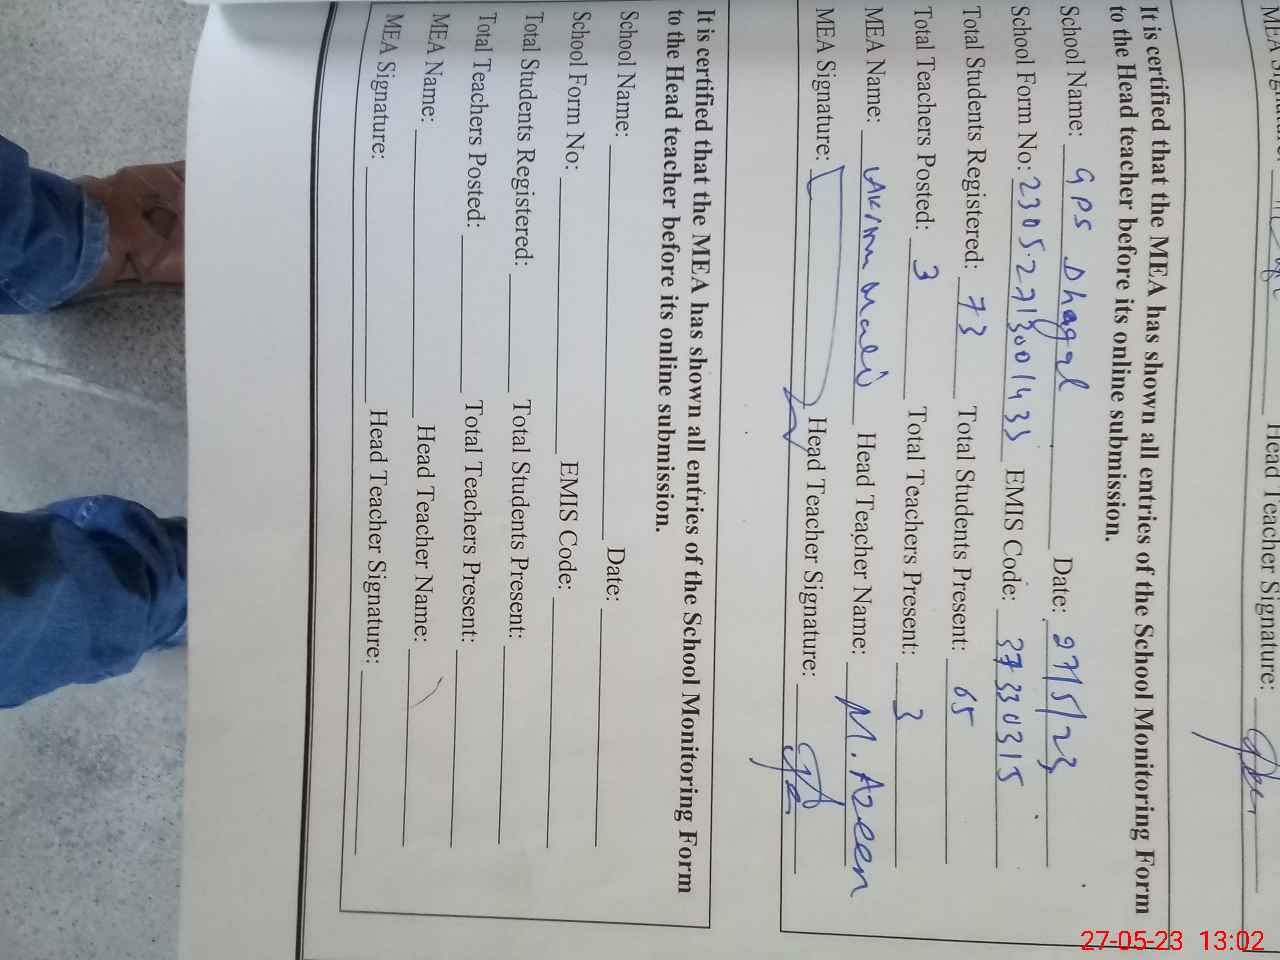 MEA Signature: Head Teacher Signature:
It is certified that the MEA has shown all entries of the School Monitoring Form
to the Head teacher before its online submission.
School Name: GPS Dhagal Date: 27/5/23
School Form No: EMIS Code: 37330315
Total Students Registered: 73 Total Students Present: 65
Total Teachers Posted: 3 Total Teachers Present: 3
MEA Name: Head Teacher Name: M. Azeem
MEA Signature: Head Teacher Signature:
It is certified that the MEA has shown all entries of the School Monitoring Form
to the Head teacher before its online submission.
School Name: Date:
School Form No: EMIS Code:
Total Students Registered: Total Students Present:
Total Teachers Posted: Total Teachers Present:
MEA Name: Head Teacher Name:
MEA Signature: Head Teacher Signature:
27-05-23 13:02